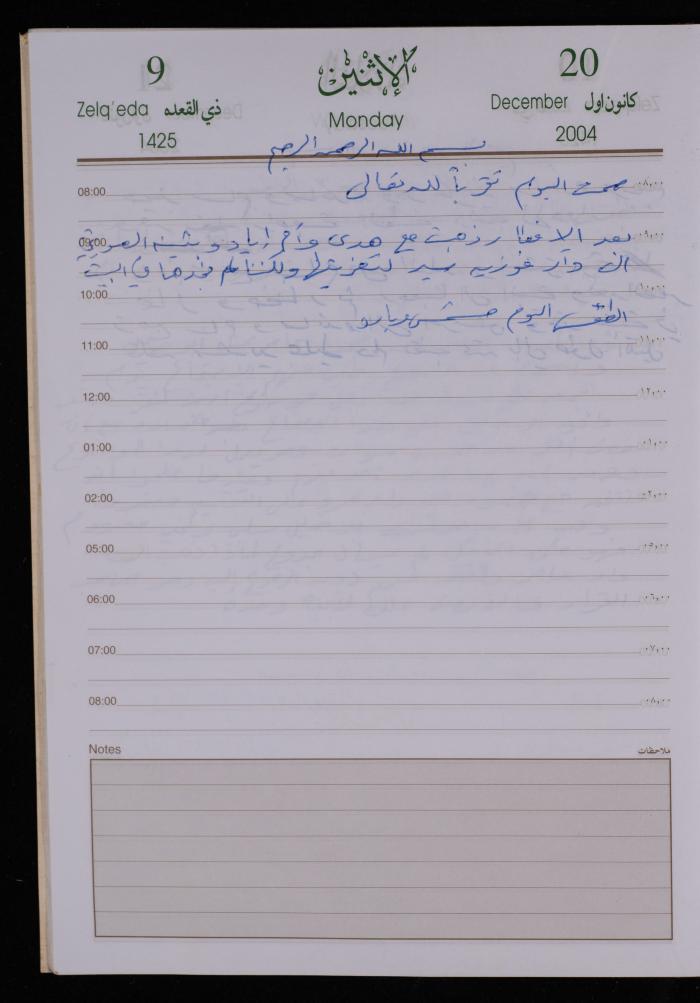 9 الإثنين 20
Zelq'eda ذي القعده December كانون اول
1425 Monday 2004
بسم الله الرحمن الرحيم
08:00 ٠٨:٠٠
اليوم تقرباً لله تعالى
09:00 ٠٩:٠٠
بعد الافطار ذهبت مع هدى وأم اياد و
الى دار فوزيه لتعزيتها ولكننا لم نجدها في البيت
10:00 ١٠:٠٠
الطقس اليوم مشمس وبارد
11:00 ١١:٠٠
12:00 ١٢:٠٠
01:00 ٠١:٠٠
02:00 ٠٢:٠٠
05:00 ٠٥:٠٠
06:00 ٠٦:٠٠
07:00 ٠٧:٠٠
08:00 ٠٨:٠٠
Notes ملاحظات